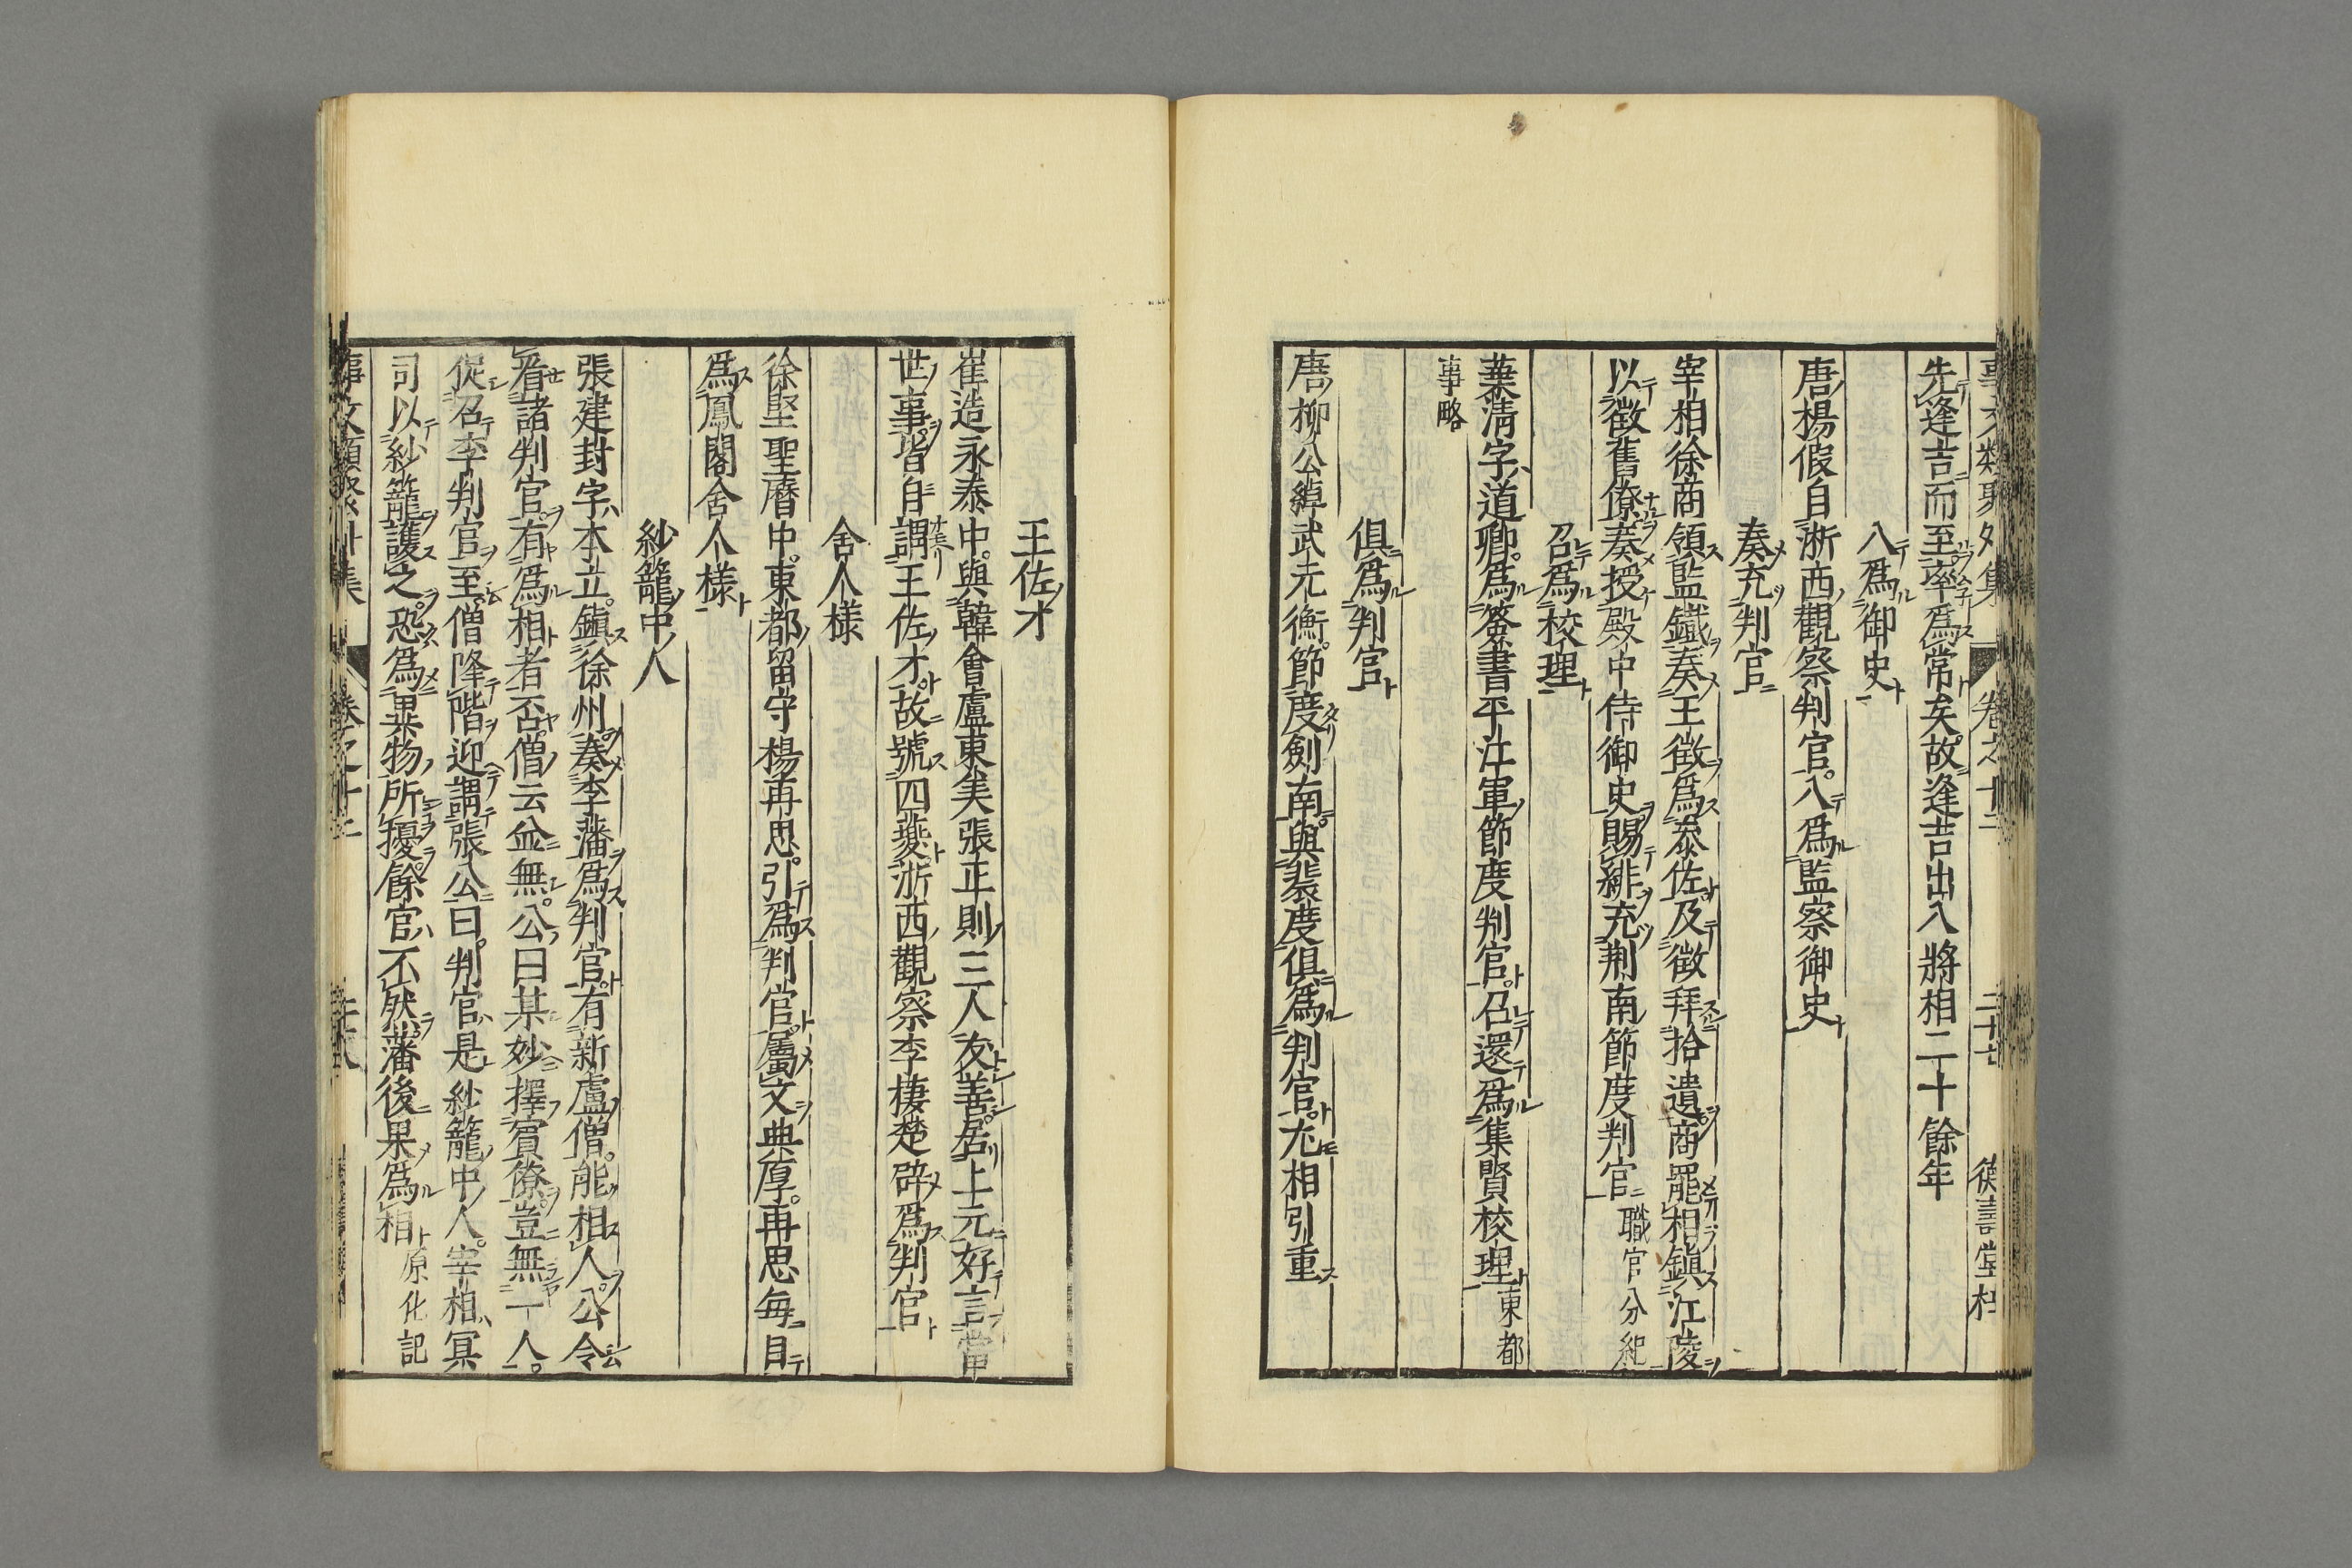 事文類聚外集 卷之十二 二十七 德壽堂梓
先逢吉而至率爲常矣故逢吉出入將相二十餘年
入爲御史
唐楊假自浙西觀察判官入爲監察御史
奏充判官
宰相徐商領監鐵奏王徵爲叅佐及徵拜拾遺商罷相鎮江陵
以徵舊僚奏授殿中侍御史賜緋充荆南節度判官 職官分紀
召爲校理
葉淸字道卿爲簽書平江軍節度判官召還爲集賢校理 東都
事略
俱爲判官
唐柳公綽武元衡節度劍南與裴度俱爲判官尤相引重
王佐才
崔造永泰中與韓會盧東美張正則三人友善居上元好言當
世事皆自謂王佐才故號四夔浙西觀察李棲楚辟爲判官
舍人樣
徐堅聖曆中東都留守楊再思引爲判官屬文典厚再思每目
爲鳳閣舍人樣
紗籠中人
張建封字本立鎭徐州奏李藩爲判官有新盧僧能相人公令
看諸判官有爲相者否僧云並無公曰某妙擇賓僚豈無一人
促召李判官至僧降階迎謂張公曰判官是紗籠中人宰相冥
司以紗籠護之恐爲異物所擾餘官不然藩後果爲相 原化記
事文類聚外集 卷之十二